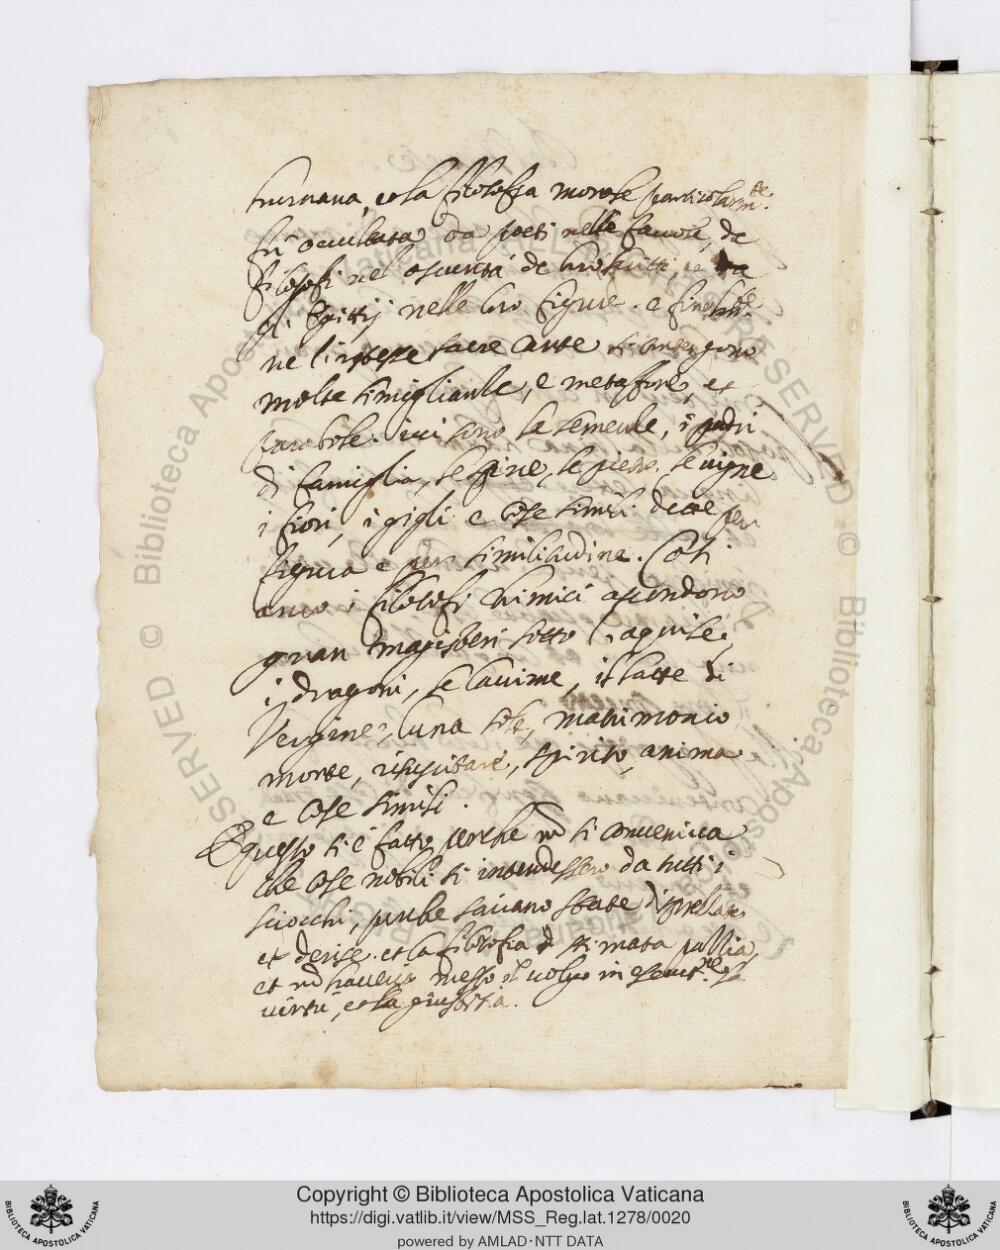 humana, et la filosofia morale particolarm.te
fù occultata da poeti nelle favole, da
filosofi nel oscurità de loro scritti
gl' Egittij nelle loro figure. e finalm.te
ne l'istesse sacre carte si contengono
molte simiglianze, e metafore, et
parabole. ivi sono la semente, i padri
di famiglia, le spine, le pietre, le vigne
i fiori, i gigli e cose simili dette per
figura e per similitudine. Così
anco i filosofi chimici ascondono
gran magisteri sotto l'aquile,
i dragoni, le lacrime, il latte di
Vergine, luna sole, matrimonio
morte, risuscitare, spirito, anima
e cose simili.
E questo si è fatto perche nõ si conveniva
che cose nobili si intendessero da tutti i
sciocchi, perche sariano state disprezzate
et derise. et la filosofia stimata pazzia,
et nõ haveria messo il volgo in la
virtù, et la giustitia.
Copyright © Biblioteca Apostolica Vaticana
https://digi.vatlib.it/view/MSS_Reg.lat.1278/0020
powered by AMLAD·NTT DATA